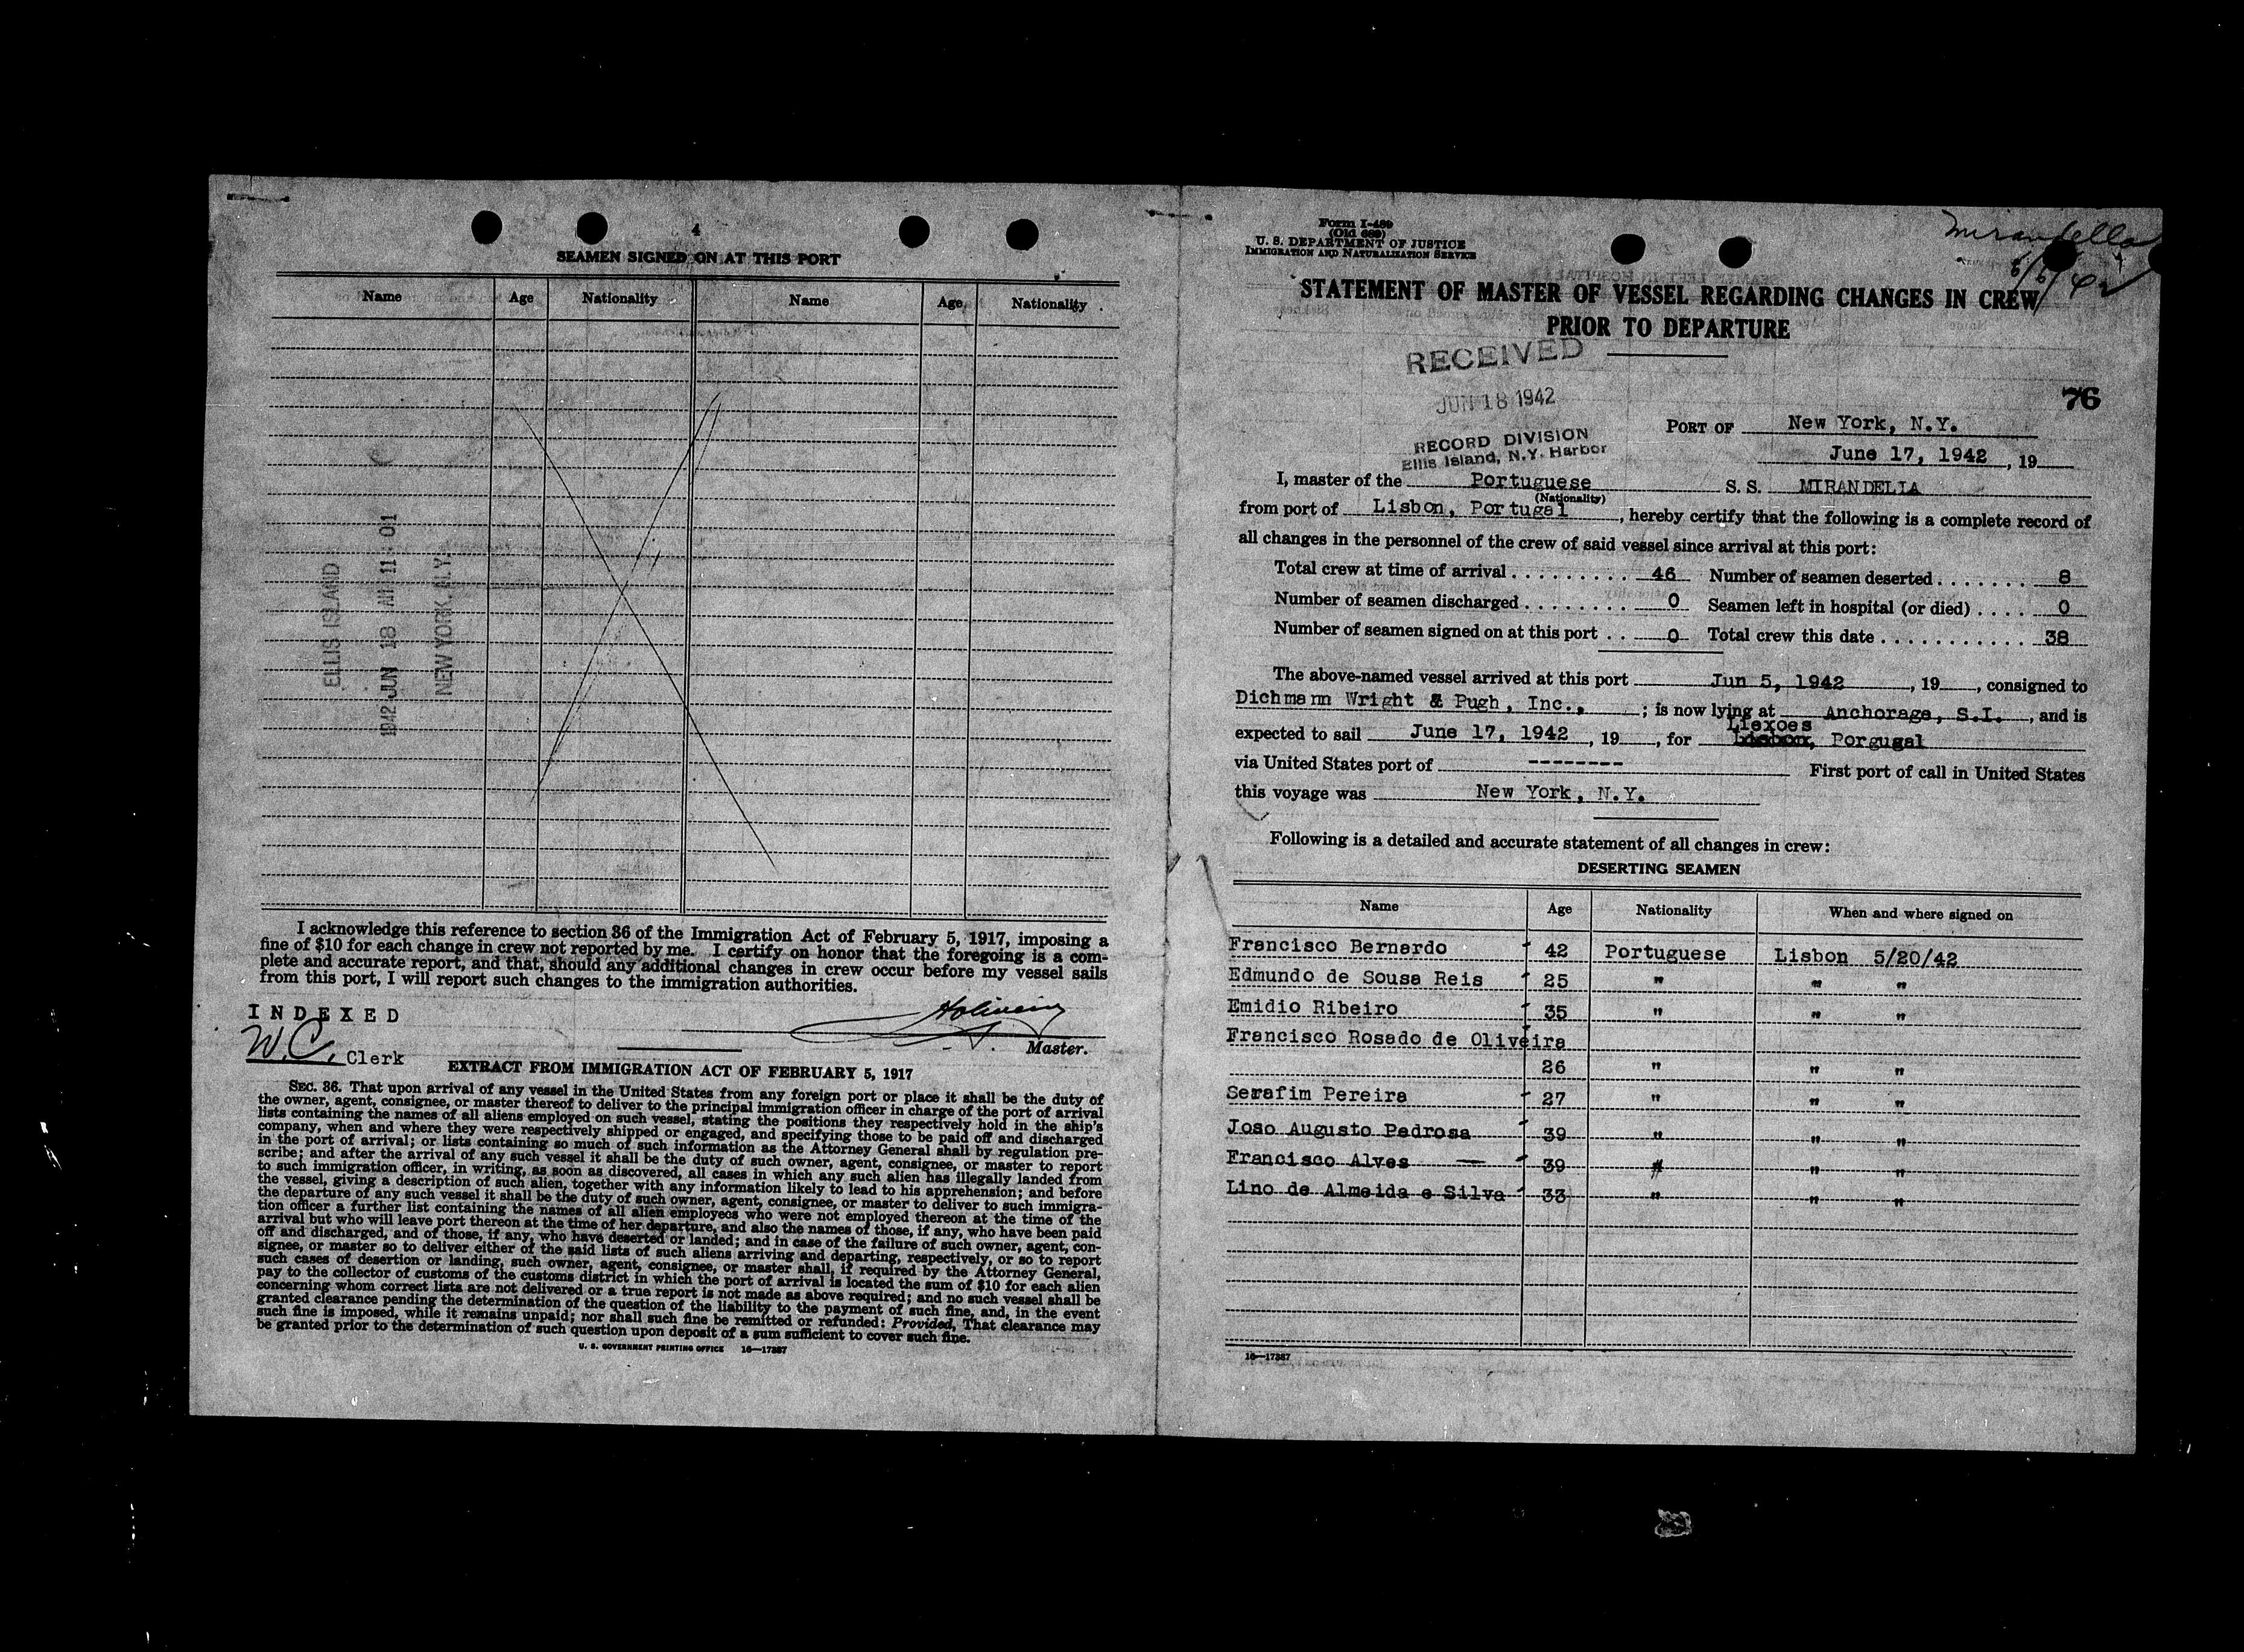 4
SEAMEN SIGNED ON AT THIS PORT
Name Age Nationality Name Age Nationality
ELLIS ISLAND
1942 JUN 18 AM 11:01
NEW YORK, N.Y.
I acknowledge this reference to section 36 of the Immigration Act of February 5, 1917, imposing a
fine of $10 for each change in crew not reported by me. I certify on honor that the foregoing is a com-
plete and accurate report, and that, should any additional changes in crew occur before my vessel sails
from this port, I will report such changes to the immigration authorities.
INDEXED
W.C. Clerk
Master.
EXTRACT FROM IMMIGRATION ACT OF FEBRUARY 5, 1917
SEC. 36. That upon arrival of any vessel in the United States from any foreign port or place it shall be the duty of
the owner, agent, consignee, or master thereof to deliver to the principal immigration officer in charge of the port of arrival
lists containing the names of all aliens employed on such vessel, stating the positions they respectively hold in the ship's
company, when and where they were respectively shipped or engaged, and specifying those to be paid off and discharged
in the port of arrival; or lists containing so much of such information as the Attorney General shall by regulation pre-
scribe; and after the arrival of any such vessel it shall be the duty of such owner, agent, consignee, or master to report
to such immigration officer, in writing, as soon as discovered, all cases in which any such alien has illegally landed from
the vessel, giving a description of such alien, together with any information likely to lead to his apprehension; and before
the departure of any such vessel it shall be the duty of such owner, agent, consignee, or master to deliver to such immigra-
tion officer a further list containing the names of all alien employees who were not employed thereon at the time of the
arrival but who will leave port thereon at the time of her departure, and also the names of those, if any, who have been paid
off and discharged, and of those, if any, who have deserted or landed; and in case of the failure of such owner, agent, con-
signee, or master so to deliver either of the said lists of such aliens arriving and departing, respectively, or so to report
such cases of desertion or landing, such owner, agent, consignee, or master shall, if required by the Attorney General,
pay to the collector of customs of the customs district in which the port of arrival is located the sum of $10 for each alien
concerning whom correct lists are not delivered or a true report is not made as above required; and no such vessel shall be
granted clearance pending the determination of the question of the liability to the payment of such fine, and, in the event
such fine is imposed, while it remains unpaid; nor shall such fine be remitted or refunded: Provided, That clearance may
be granted prior to the determination of such question upon deposit of a sum sufficient to cover such fine.
U. S. GOVERNMENT PRINTING OFFICE 16—17387
Form I-489
(Old 689)
U. S. DEPARTMENT OF JUSTICE
IMMIGRATION AND NATURALIZATION SERVICE
Mirandella
6/5/42
STATEMENT OF MASTER OF VESSEL REGARDING CHANGES IN CREW
PRIOR TO DEPARTURE
RECEIVED
JUN 18 1942
RECORD DIVISION
Ellis Island, N.Y. Harbor
76
PORT OF New York, N.Y.
June 17, 1942, 19
I, master of the Portuguese S. S. MIRANDELIA
(Nationality)
from port of Lisbon, Portugal, hereby certify that the following is a complete record of
all changes in the personnel of the crew of said vessel since arrival at this port:
Total crew at time of arrival . . . . . . . . . 46 Number of seamen deserted . . . . . . . 8
Number of seamen discharged . . . . . . . . 0 Seamen left in hospital (or died) . . . . 0
Number of seamen signed on at this port . . 0 Total crew this date . . . . . . . . . . . . 38
The above-named vessel arrived at this port Jun 5, 1942, 19, consigned to
Dichmann Wright & Pugh, Inc., ; is now lying at Anchorage, S.I., and is
Liexoes
expected to sail June 17, 1942, 19, for Lisbon, Porgugal
via United States port of -------- First port of call in United States
this voyage was New York, N.Y.
Following is a detailed and accurate statement of all changes in crew:
DESERTING SEAMEN
Name Age Nationality When and where signed on
Francisco Bernardo 42 Portuguese Lisbon 5/20/42
Edmundo de Sousa Reis 25 " " "
Emidio Ribeiro 35 " " "
Francisco Rosado de Oliveira
26 " " "
Serafim Pereira 27 " " "
Joso Augusto Pedrosa 39 " " "
Francisco Alves — 39 " " "
Lino de Almeida e Silva 33 " " "
16—17387